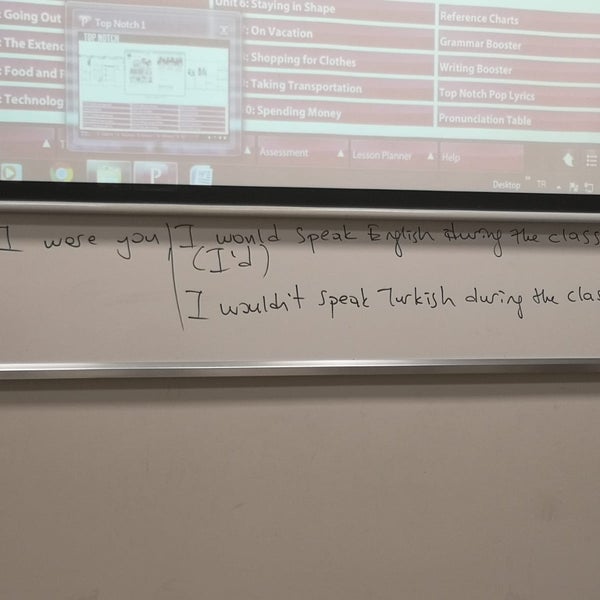 Unit 6: Staying in Shape
: Going Out
: On Vacation
: The Extend
: Shopping for Clothes
: Food and
: Taking Transportation
: Technolog
0: Spending Money
Reference Charts
Grammar Booster
Writing Booster
Top Notch Pop Lyrics
Pronunciation Table
Top Notch 1
TOP NOTCH
Assessment
Lesson Planner
Help
Desktop
TR
I were you, I would speak English during the class
(I'd)
I wouldn't speak Turkish during the clas